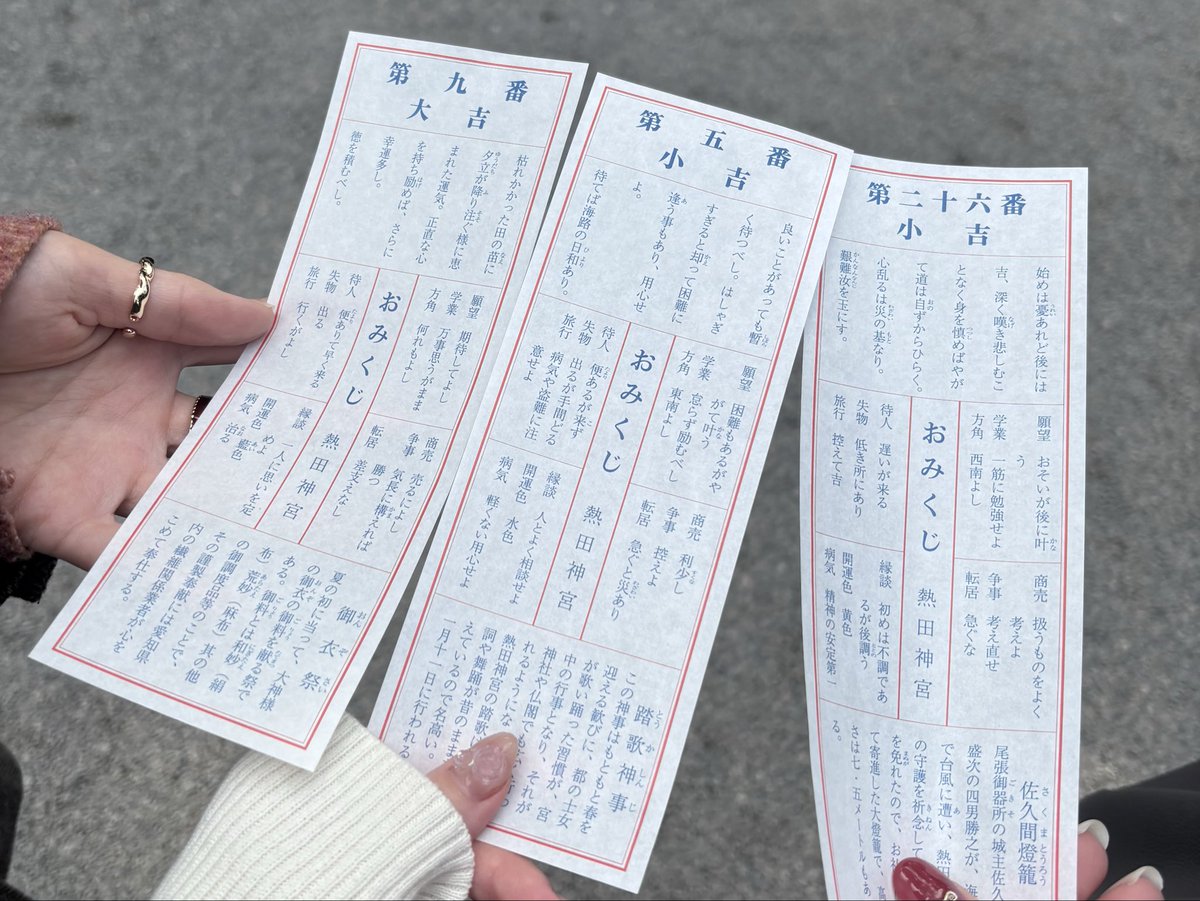 第九番
大吉
枯れかかった田の苗に
夕立が降り注ぐ様に恵
まれた運気。正直な心
を持ち励めば、さらに
幸運多し。
徳を積むべし。
願望 期待してよし
学業 万事思うがまま
方角 何れもよし
おみくじ
待人 便ありて早く来る
失物 出る
旅行 行くがよし
商売 売るによし
争事 気長に構えれば
勝つ
転居 差支えなし
熱田神宮
縁談 一人に思いを定
めよ
開運色 藍色
病気 治る
御衣祭
夏の初に当って、大神様
の御衣の御料を献る祭で
ある。御料とは和妙(絹
布)荒妙(麻布)其の他
の御調度品等のことで、
その謹製奉献には愛知県
内の繊維関係業者が心を
こめて奉仕する。
第五番
小吉
良いことがあっても暫
く待つべし。はしゃぎ
すぎると却って困難に
逢う事もあり、用心せ
よ。
待てば海路の日和あり。
願望 困難もあるがや
がて叶う
学業 怠らず励むべし
方角 東南よし
おみくじ
待人 便あるが来ず
失物 出るが手間どる
旅行 病気や盗難に注
意せよ
商売 利少し
争事 控えよ
転居 急ぐと災あり
熱田神宮
縁談 人とよく相談せよ
開運色 水色
病気 軽くない用心せよ
踏歌神事
この神事はもともと春を
迎える歓びに、都の士女
が歌い踊った習慣が、宮
中の行事となり、それが
神社や仏閣でも
れるようにな
熱田神宮の踏歌
詞や舞踊が昔のまま
えているので名高い。
一月十一日に行われる
第二十六番
小吉
始めは憂あれど後には
吉、深く嘆き悲しむこ
となく身を慎めばやが
て道は自ずからひらく。
心乱るは災の基なり。
艱難汝を玉にす。
願望 おそいが後に叶
う
学業 一筋に勉強せよ
方角 西南よし
おみくじ
待人 遅いが来る
失物 低き所にあり
旅行 控えて吉
商売 扱うものをよく
考えよ
争事 考え直せ
転居 急ぐな
熱田神宮
縁談 初めは不調であ
るが後調う
開運色 黄色
病気 精神の安定第一
佐久間燈籠
尾張御器所の城主佐久
盛次の四男勝之が、海
で台風に遭い、熱田
の守護を祈念して
を免れたので、お
て寄進した大燈籠で、高
さは七・五メートルもあ
る。